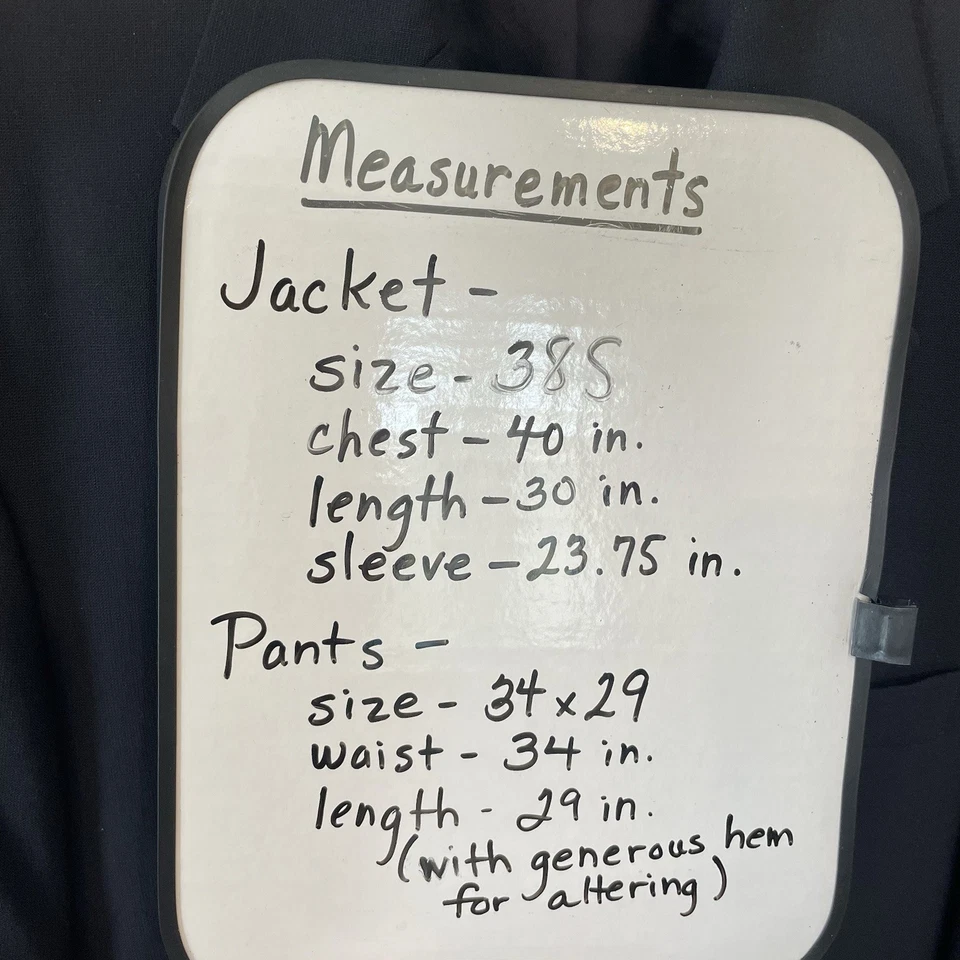 Measurements
Jacket -
size - 38S
chest - 40 in.
length - 30 in.
sleeve - 23.75 in.
Pants -
size - 34x29
waist - 34 in.
length - 29 in.
(with generous hem
for altering)